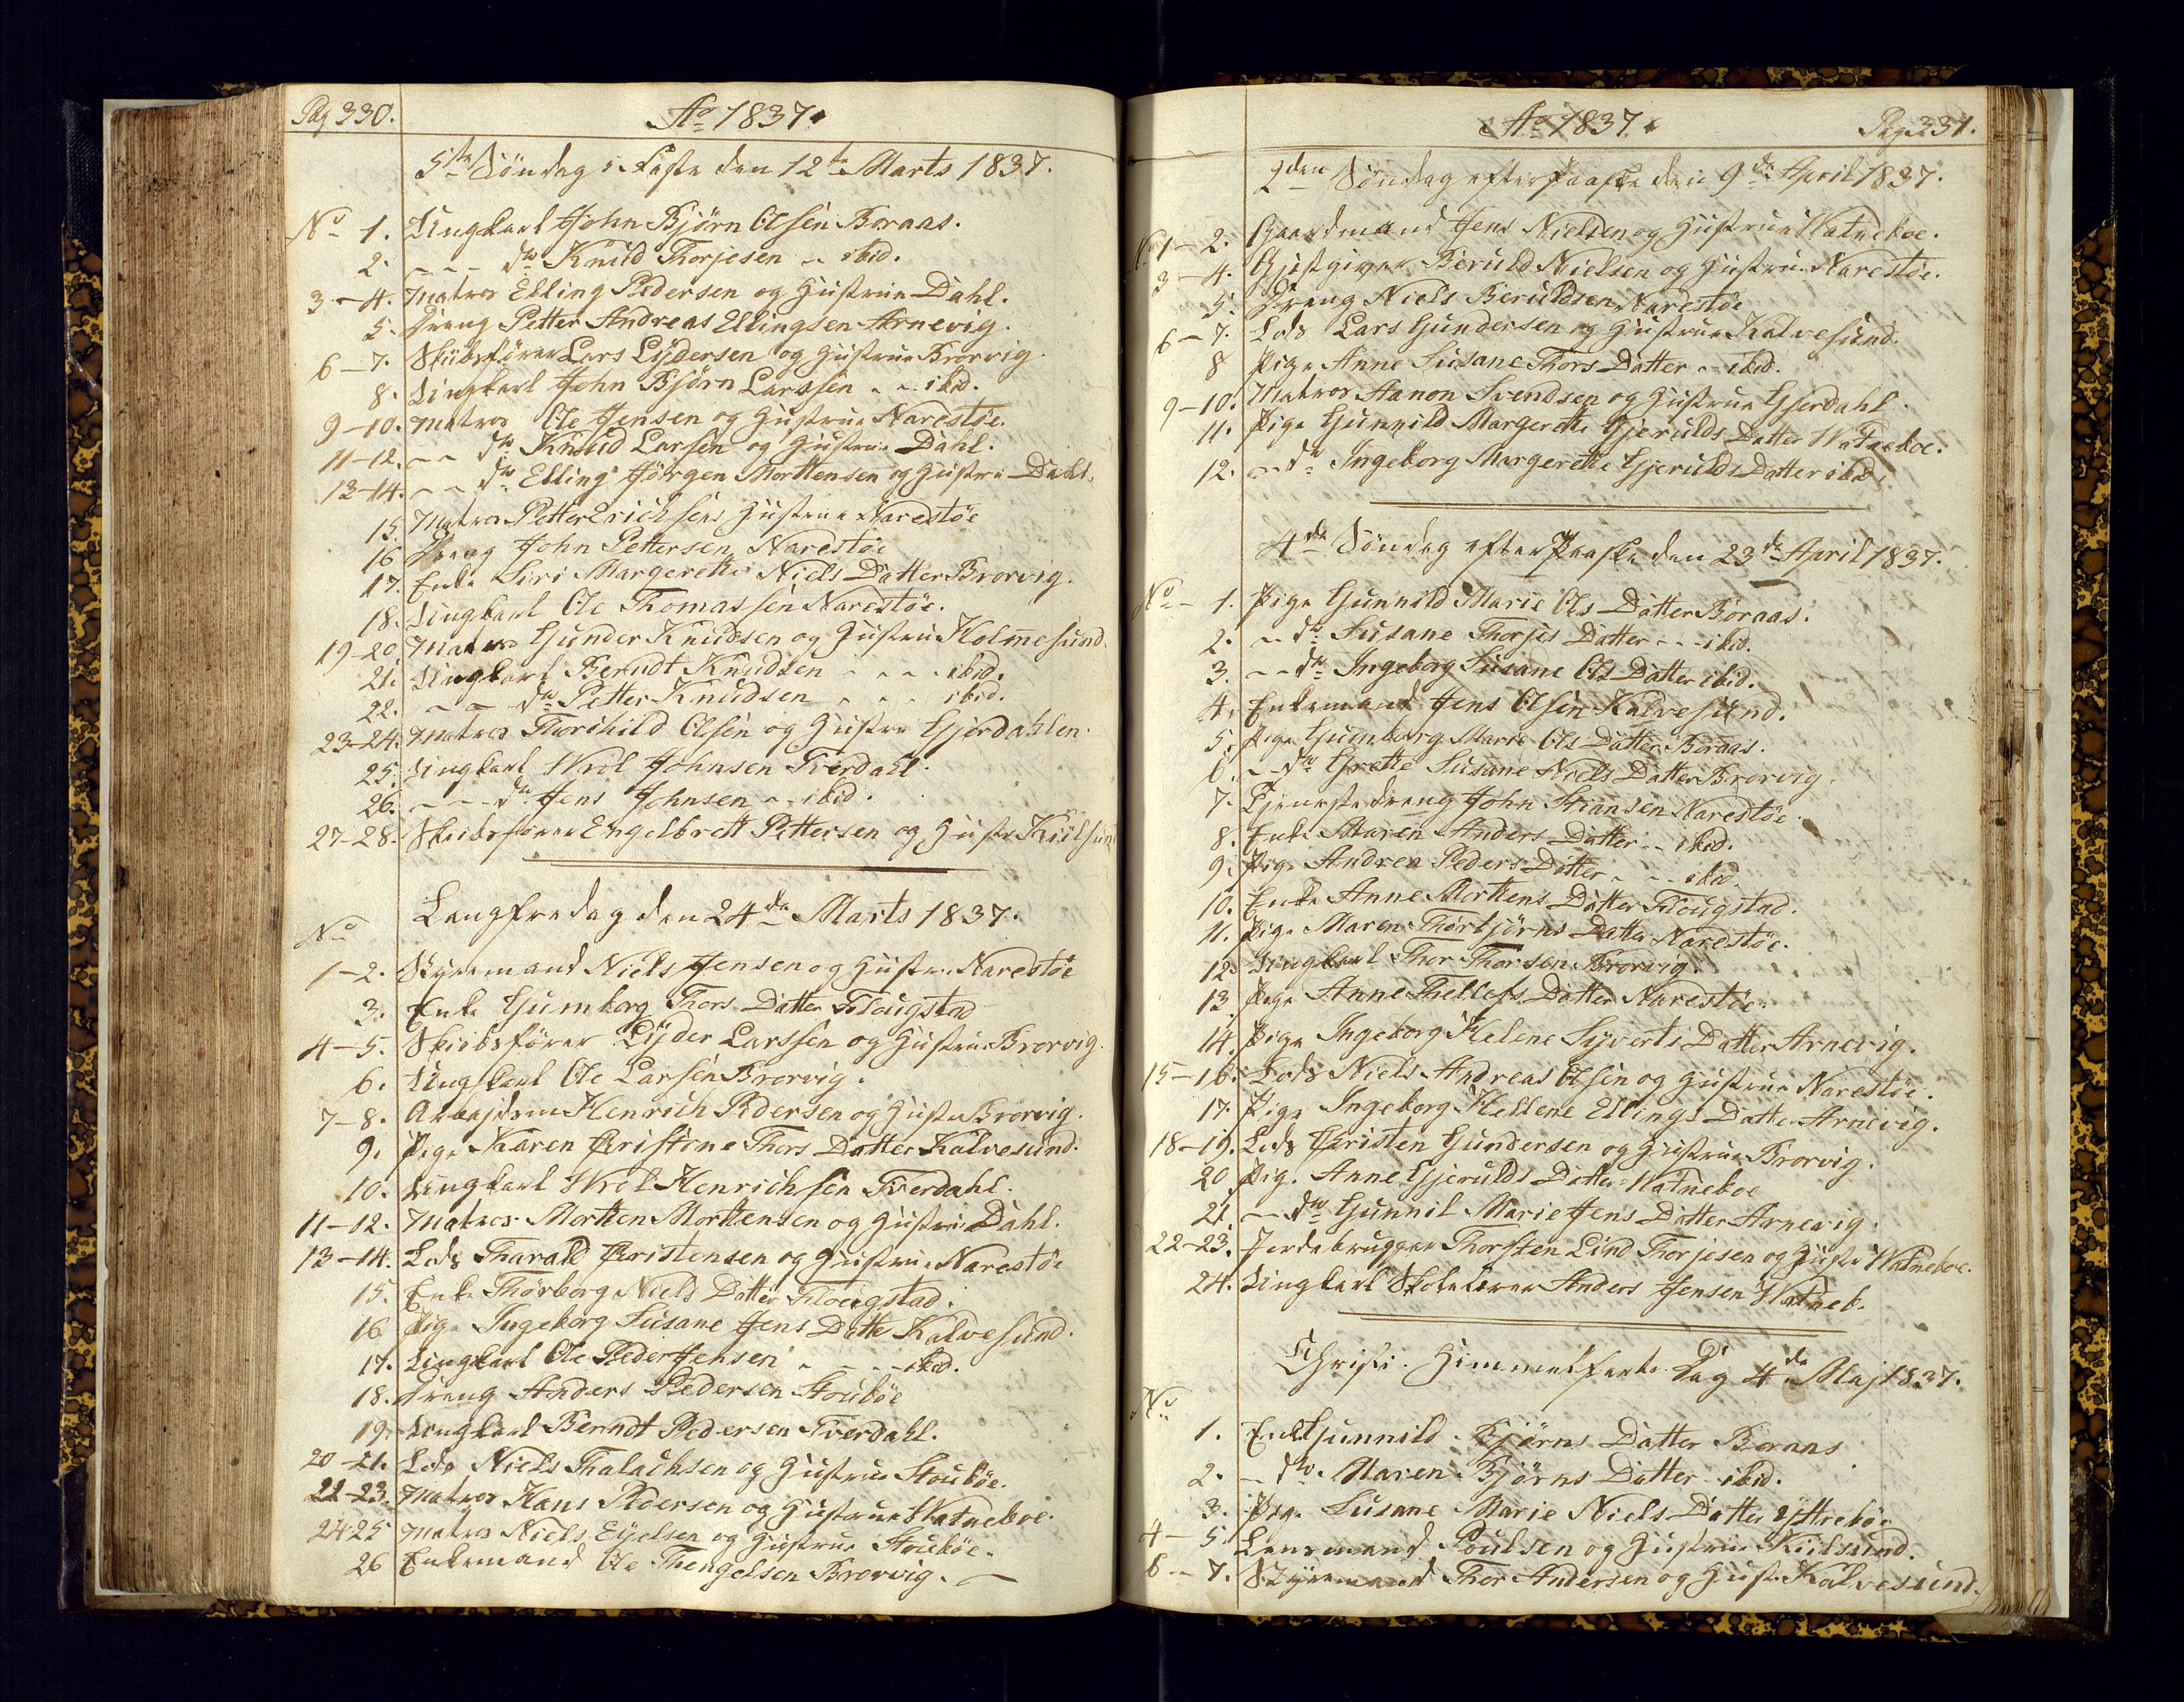 Pag 330.
Ao 1837.
5te Söndag i Faste den 12te Marts 1837.
No 1. Ungkarl John Björn Olsen Boraas.
2. - - - do Knud Thorjesen - - ibid.
3-4. Matros Elling Pedersen og Hustrue Dahl.
5. Dreng Petter Andreas Ellingsen Arnevig.
6-7. Skibsförer Lars Lydersen og Hustrue Brorvig.
8. Ungkarl John Björn Larssen - - ibid.
9-10. Matros Ole Jensen og Hustrue Narestöe.
11-12. - - do Knud Larsen og Hustrue Dahl.
13-14. - - do Elling Jörgen Morttensen og Hustru Dahl.
15. Matros Petter Erichsens Hustrue Narestöe
16 Dreng John Pettersen Narestöe
17. Enke Siri Margerethe Niels Datter Brorvig.
18. Ungkarl Ole Thomassen Narestöe.
19-20 Matros Gunder Knudsen og Hustru Holmesund.
21. Ungkarl Berndt Knudsen - - - - ibid.
22. - - do Petter Knudsen - - - ibid.
23-24. Matros Thorchild Olsen og Hustru Gjerdahlen.
25. Ungkarl Wrol Johnsen Tverdahl.
26. - - - do Jens Johnsen - - ibid.
27-28. Skibsförer Engelbrett Pettersen og Hustr Kiilsund
Langfredag den 24de Marts 1837.
No
1-2. Styrmand Niels Jensen og Hustru Narestöe
3. Enke Gumborg Thors Datter Flougstad
4-5. Skibsförer Lyder Larssen og Hustrue Brorvig.
6. Ungkarl Ole Larsen Brorvig.
7-8. Arbejdsm Henrich Pedersen og Hustr Brorvig.
9. Pige Karen Christone Thors Datter Kalvesund.
10. Ungkarl Wrol Henrichsen Tverdahl.
11-12. Matros Morten Morttensen og Hustru Dahl.
13-14. Lods Tharald Christensen og Hustrue Narestöe
15. Enke Thorborg Niels Datter Flougstad.
16 Pige Ingeborg Susane Jens Datte Kalvesund.
17. Ungkarl Ole Peder Jensen - - - - ibid.
18. Dreng Anders Pedersen Stouböe
19. Ungkarl Berndt Pedersen Tverdahl.
20-21. Lods Niels Thalachsen og Hustrue Stouböe.
22-23. Matros Hans Pedersen og Hustrue Watneboe.
24 25 Matros Niels Eyelsen og Hustrue Stouböe.
26 Enkemand Ole Thengelsen Brorvig.
Ao 1837.
Pag. 331.
2den Söndag efter Paaske den 9de April 1837.
No 1-2. Gaardmand Jens Nielsen og Hustrue Watneboe.
3-4. Gjestgiver Beruld Nielsen og Hustru Narestöe.
5. Dreng Niels Beruldsen Narestöe
6-7. Lods Lars Gundersen og Hustrue Kalvesund.
8 Pige Anne Susane Thors Datter - - ibid.
9-10. Matros Aanon Svendsen og Hustrue Gjerdahl.
11. Pige Gunnild Margerethe Gjerulds Datter Watneboe.
12. - - do Ingeborg Margerethe Gjerulds Datter ibid.
4de Söndag efter Paaske den 23de April 1837.
No - 1. Pige Gunnild Marie Ols Datter Boraas.
2. - - do Susane Thorjes Datter - - - ibid.
3. - - do Ingeborg Susane Ols Datter ibid.
4. Enkemand Jens Olsen Kalvesund.
5. Pige Gumborg Marie Ols Datter Boraas.
6. - - do Grethe Susane Niels Datter Brorvig.
7. Tjenestedreng John Stiansen Narestöe.
8. Enke Maren Anders Datter - - ibid.
9. Pige Andrea Peders Datter - - - ibid.
10. Enke Anne Morthens Datter Flougstad.
11. Pige Maren Thorbjörns Datter Narestöe.
12. Ungkarl Thor Thorsen Brorvig.
13 Pige Anne Thellefs Datter Narestöe.
14. Pige Ingeborg Helene Syverts Datter Arnevig.
15-16. Lods Niels Andreas Olsen og Hustrue Narestöe.
17. Pige Ingeborg Hellene Ellings Datter Arnevig.
18-19. Lods Christen Gundersen og Hustrue Brorvig.
20 Pige Anne Gjerulds Datter Watneboe
21 - - do Gunnil Marie Jens Datter Arnevig.
22-23. Jordebrugger Thorsten Lind Thorjesen og Hustr Watneboe.
24. Ungkarl Skolelærer Anders Jensen Watneb.
Christi Himmelfarts Dag 4de Maj 1837.
No
1. Enke Gunnild Björns Datter Boraas
2. - do Maren Björns Datter ibid.
3. Pige Susane Marie Niels Datter Ytreböe
4-5. Lensmand Poulsen og Hustrue Kiilsund.
6-7. Styrmand Thor Andersen og Hustr Kalvesund.